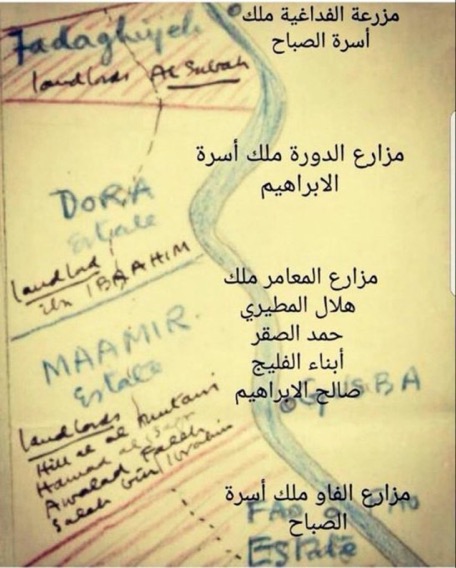 مزرعة الفداغية ملك
أسرة الصباح
Fadaghiyeh
landlords Al Subah
مزارع الدورة ملك أسرة
الابراهيم
DORA
Estate
landlord
ibn IBRAHIM
مزارع المعامر ملك
هلال المطيري
حمد الصقر
أبناء الفليج
صالح الابراهيم
MAAMIR
Estate
landlords
Hilal al Mutairi
Hamad al
Awalad Faleh
Saleh bin Ibrahim
مزارع الفاو ملك أسرة
الصباح
FAO
Estate